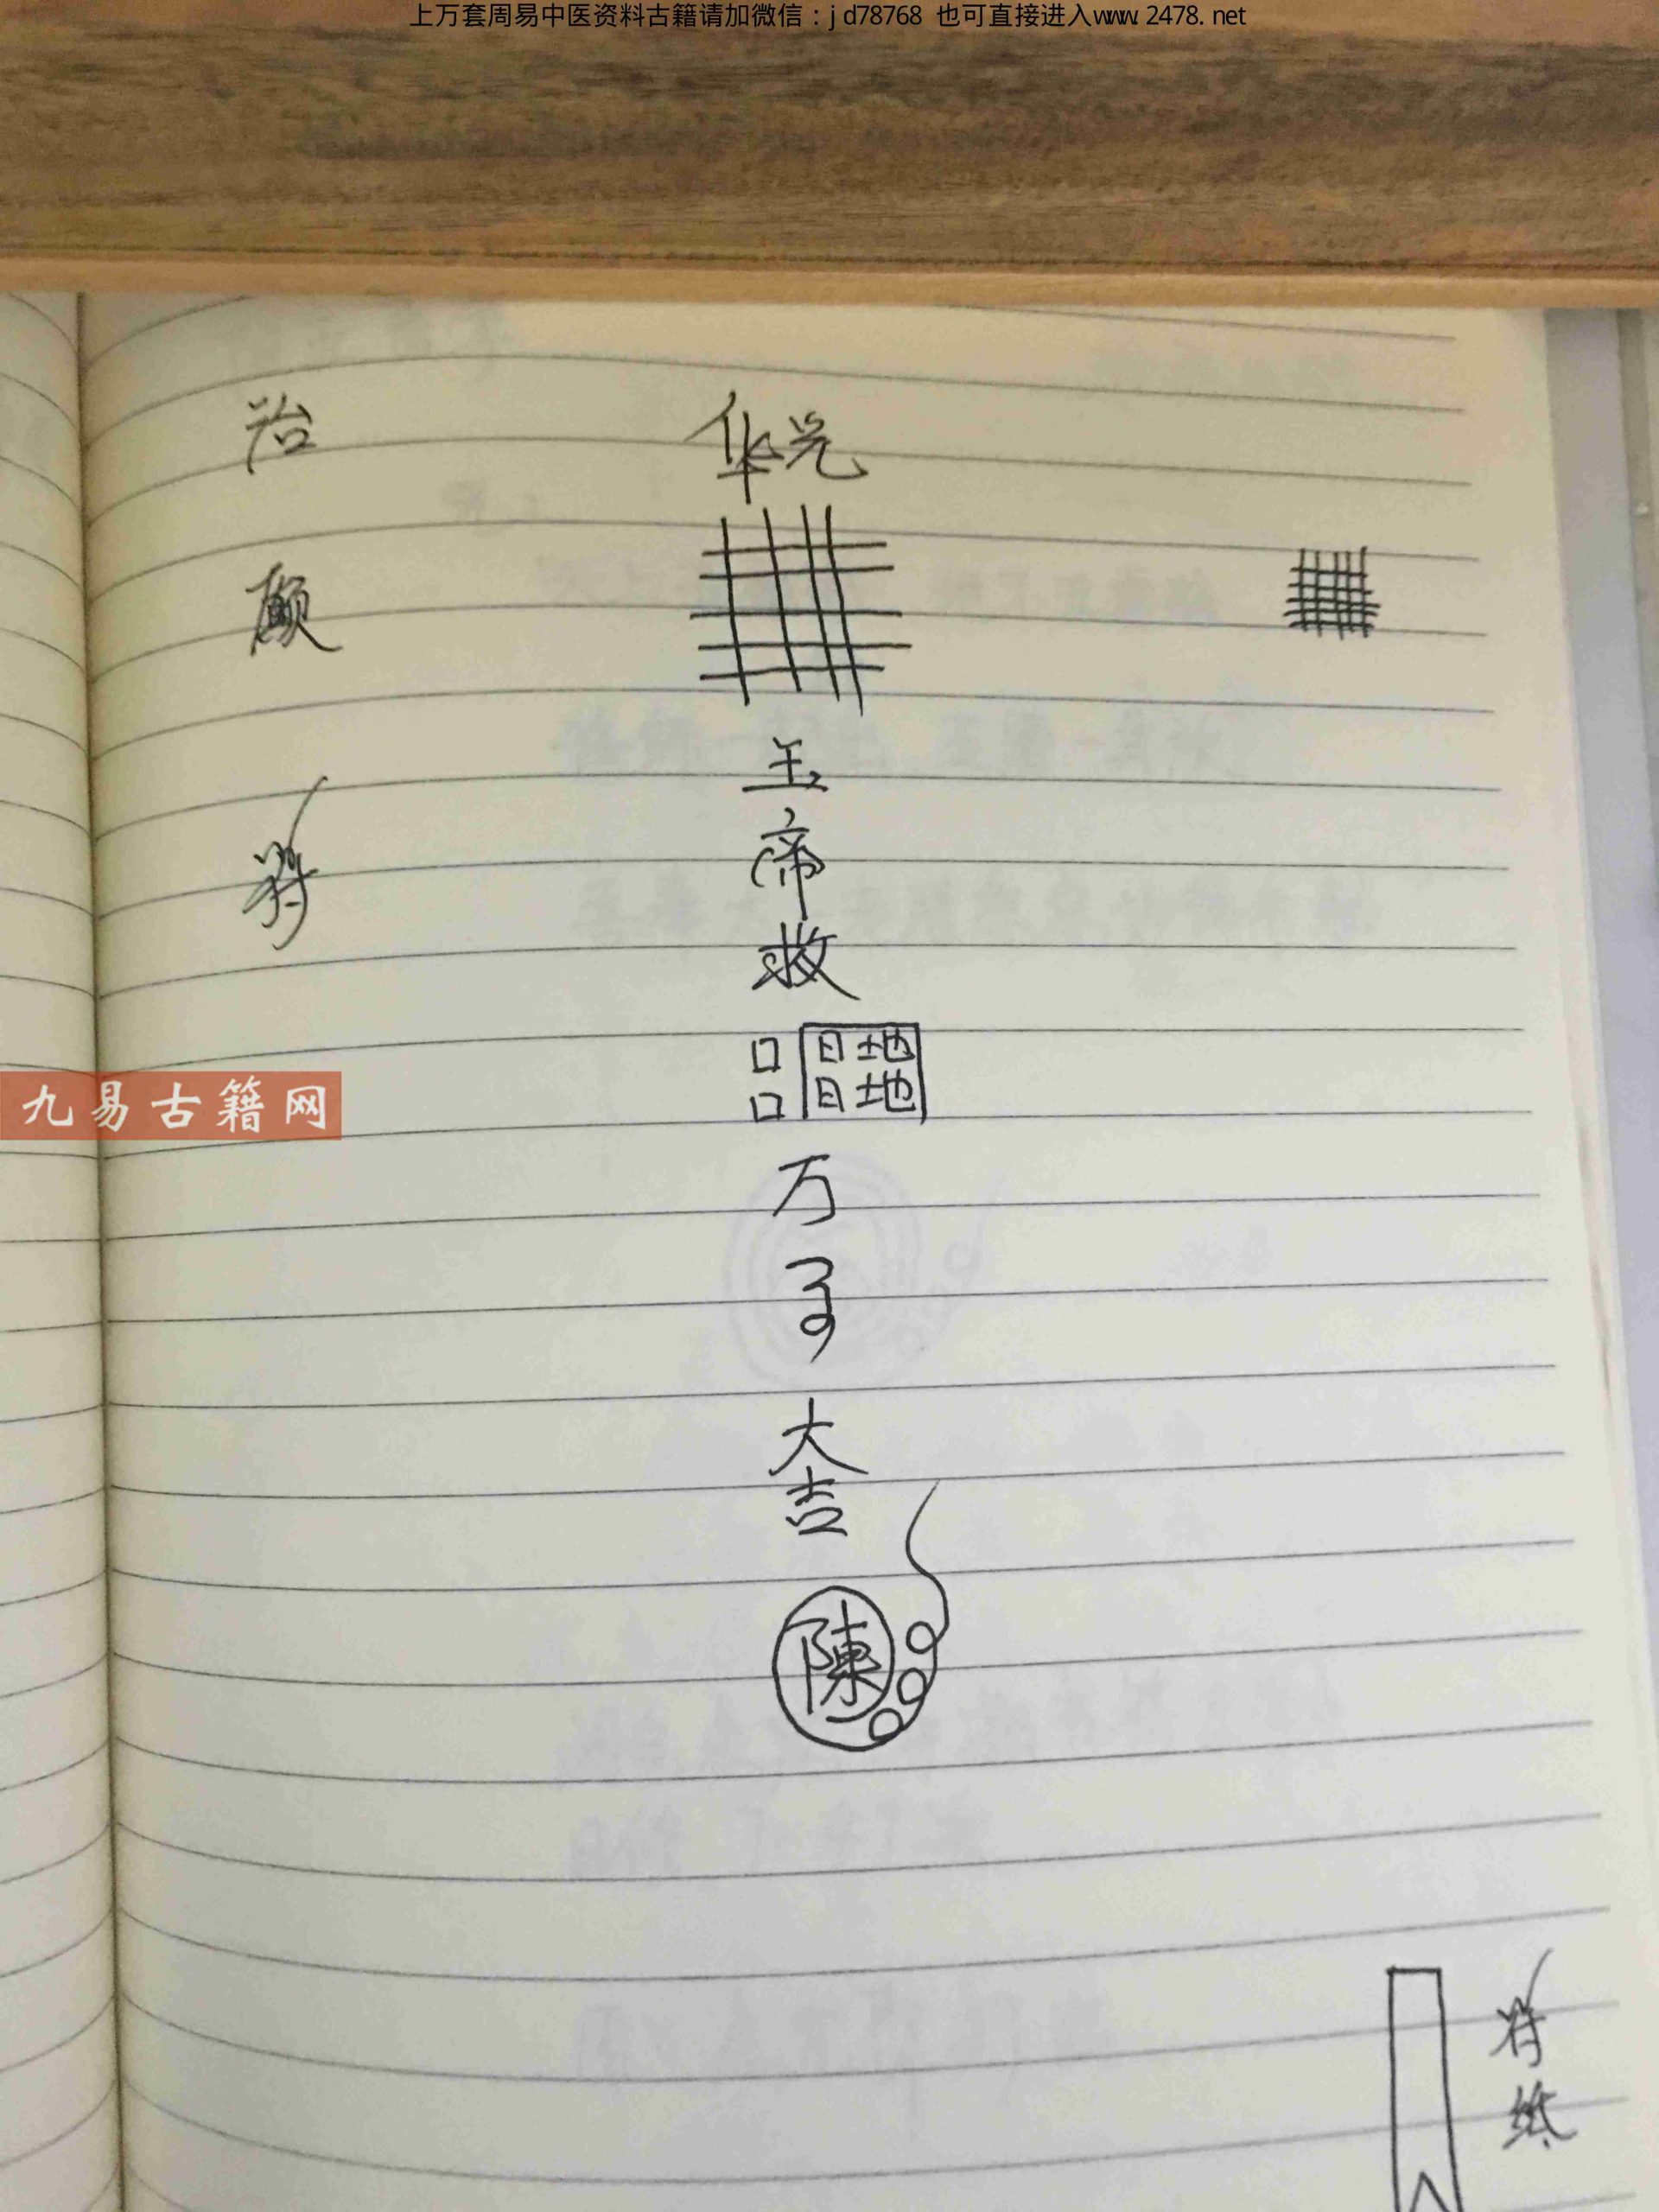 上万套周易中医资料古籍请加微信：jd78768 也可直接进入www.2478.net
治
癫
符
华光
玉
帝
救
口 日地
口 日地
万
大
吉
陳
九易古籍网
符
纸